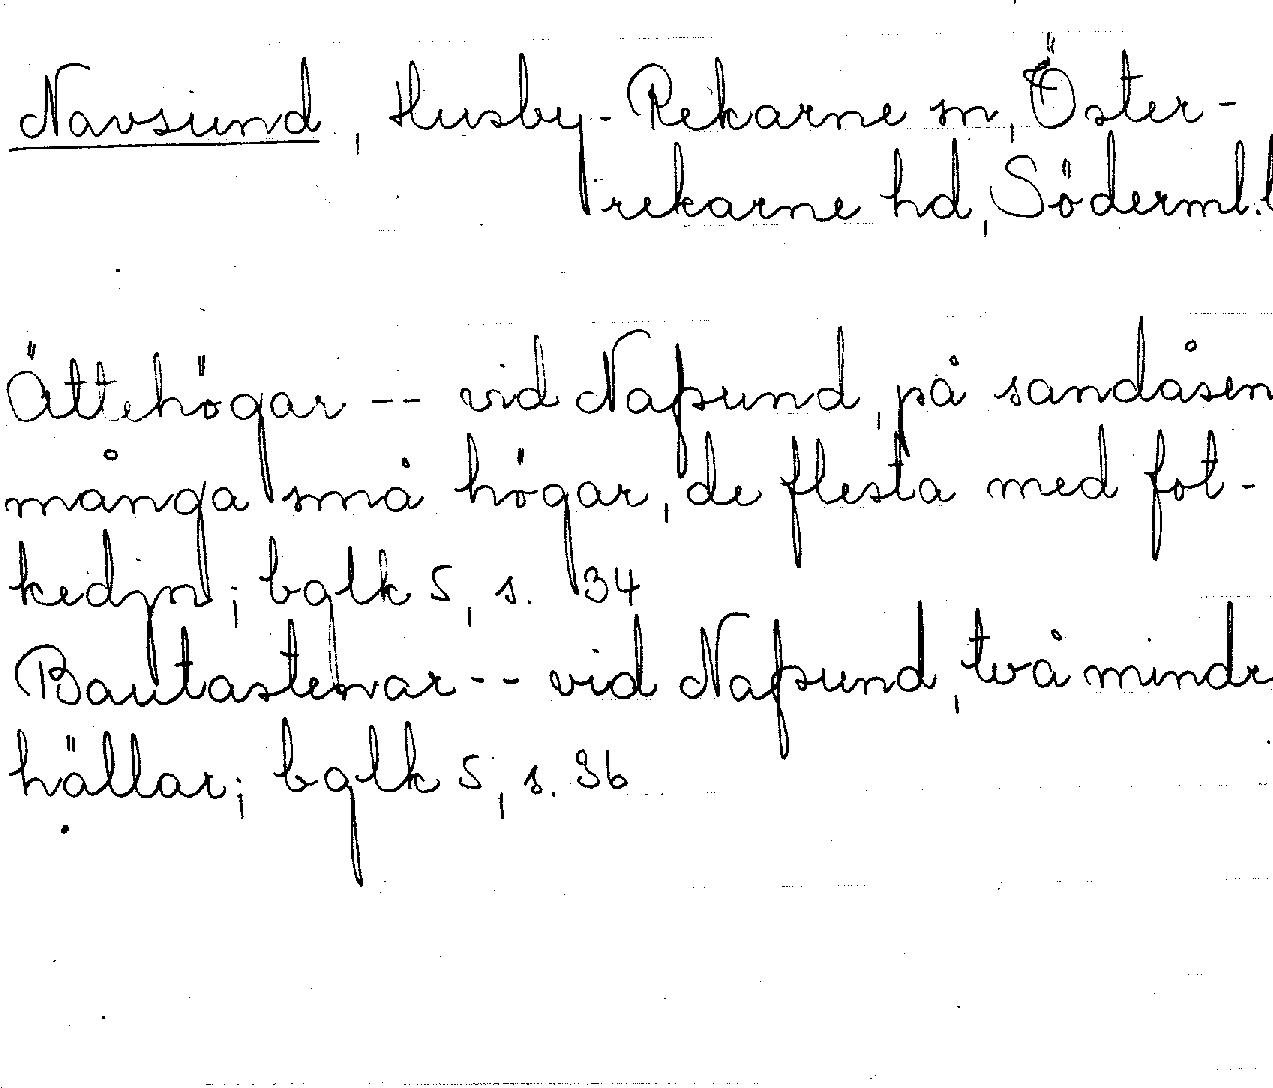 Navsund, Husby-Rekarne sn, Öster-
rekarne hd, Söderml.l
Ättehögar -- vid Nafsund, på sandåsen
många små högar, de flesta med fot-
kedjn; bqlk 5, s. 34
Bautastenar -- vid Nafsund, två mindr
hällar; bqlk 5, s. 36